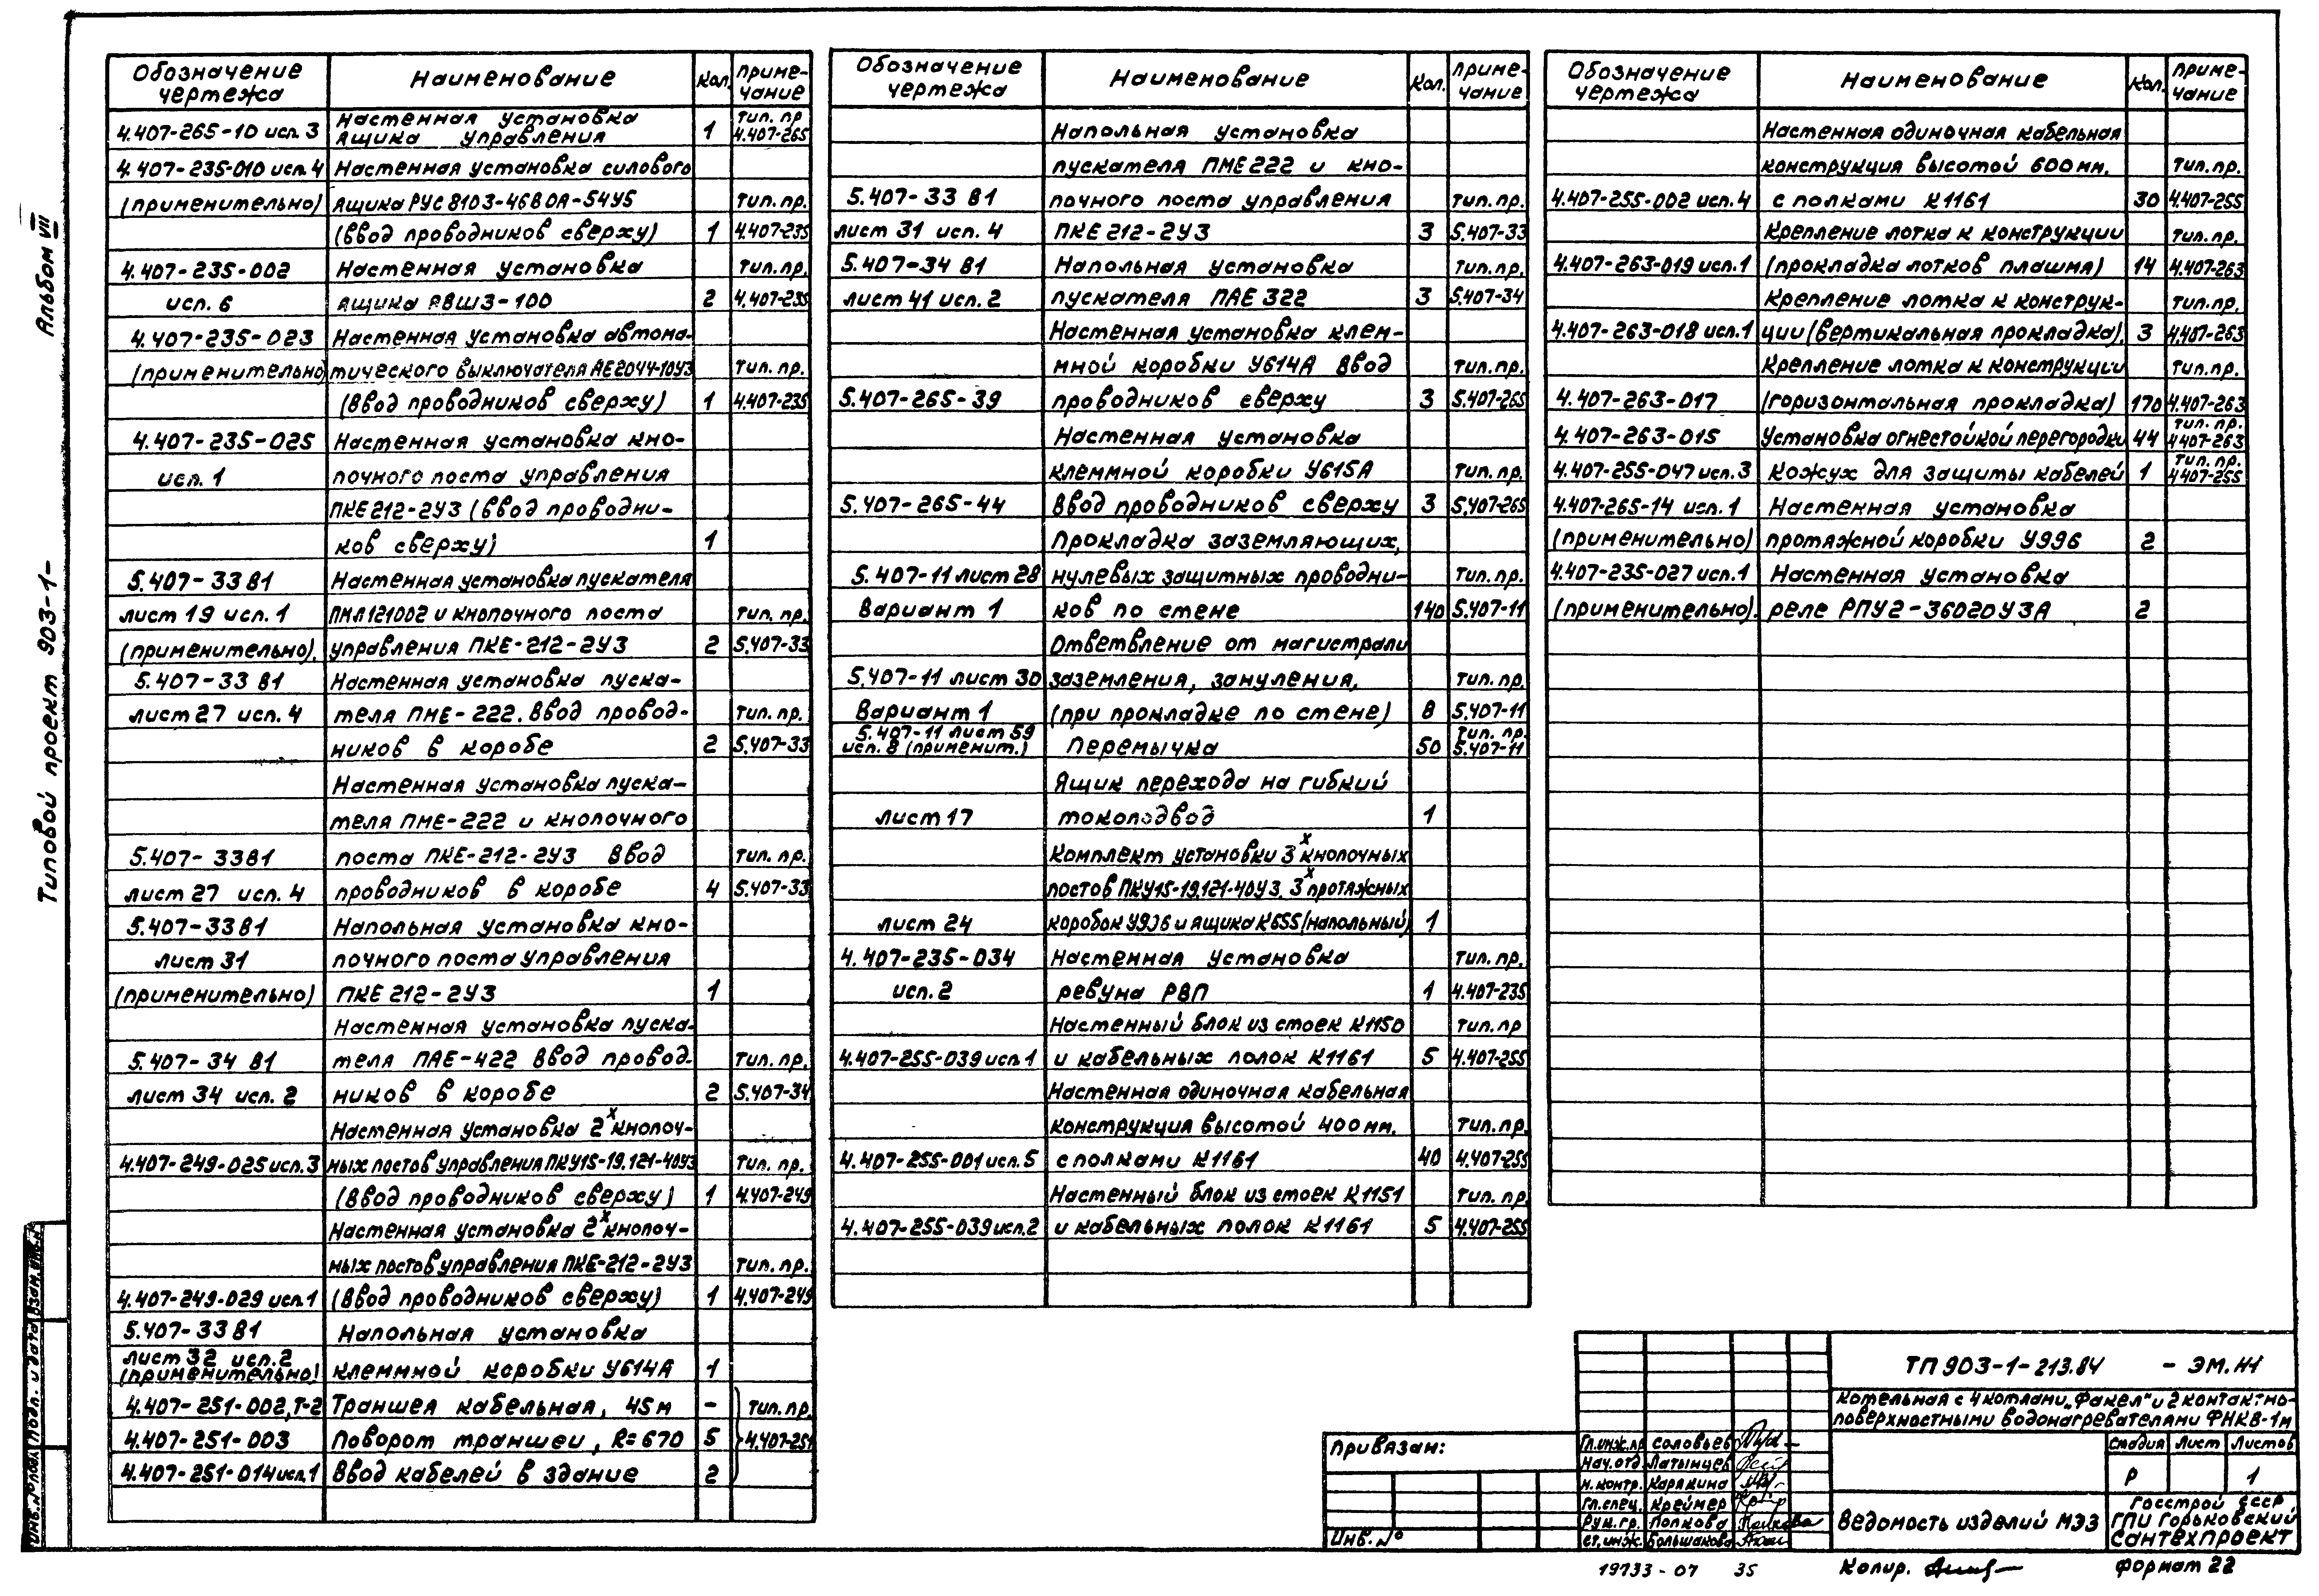 Альбом VII
Типовой проект 903-1-
Обозначение чертежа Наименование Кол. Примечание
4.407-265-10 исп. 3 Настенная установка ящика управления 1 Тип. пр 4.407-265
4.407-235-010 исп. 4 Настенная установка силового
(применительно) ящика РУС 8103-46В0А-54У5 Тип. пр.
(ввод проводников сверху) 1 4.407-235
4.407-235-002 Настенная установка Тип. пр.
исп. 6 ящика ЯВШ3-100 2 4.407-235
4.407-235-023 Настенная установка автома-
(применительно) тического выключателя АЕ2044-10У3 Тип. пр.
(ввод проводников сверху) 1 4.407-235
4.407-235-025 Настенная установка кно-
исп. 1 почного поста управления
ПКЕ 212-2У3 (ввод проводни-
ков сверху) 1
5.407-33 В1 Настенная установка пускателя
лист 19 исп. 1 ПМЛ121002 и кнопочного поста Тип. пр.
(применительно). управления ПКЕ-212-2У3 2 5.407-33
5.407-33 В1 Настенная установка пуска-
лист 27 исп. 4 теля ПМЕ-222. Ввод провод- Тип. пр.
ников в коробе 2 5.407-33
Настенная установка пуска-
теля ПМЕ-222 и кнопочного
5.407-33В1 поста ПКЕ-212-2У3 Ввод Тип. пр.
лист 27 исп. 4 проводников в коробе 4 5.407-33
5.407-33В1 Напольная установка кно-
лист 31 почного поста управления
(применительно) ПКЕ 212-2У3 1
Настенная установка пуска-
5.407-34 В1 теля ПАЕ-422 Ввод провод- Тип. пр.
лист 34 исп. 2 ников в коробе 2 5.407-34
Настенная установка 2х кнопоч-
4.407-249-025 исп. 3 ных постов управления ПКУ15-19.121-40У3 Тип. пр.
(ввод проводников сверху) 1 4.407-249
Настенная установка 2х кнопоч-
ных постов управления ПКЕ-212-2У3 Тип. пр.
4.407-249-029 исп. 1 (ввод проводников сверху) 1 4.407-249
5.407-33В1 Напольная установка
лист 32 исп. 2 (применительно) клеммной коробки У614А 1
4.407-251-002, Т-2 Траншея кабельная, 45м - Тип. пр.
4.407-251-003 Поворот траншеи, R=670 5 4.407-251
4.407-251-014 исп. 1 Ввод кабелей в здание 2
Обозначение чертежа Наименование Кол. Примечание
Напольная установка
пускателя ПМЕ 222 и кно-
5.407-33 В1 почного поста управления Тип. пр.
лист 31 исп. 4 ПКЕ 212-2У3 3 5.407-33
5.407-34 В1 Напольная установка Тип. пр.
лист 41 исп. 2 пускателя ПАЕ 322 3 5.407-34
Настенная установка клем-
мной коробки У614А Ввод Тип. пр.
5.407-265-39 проводников сверху 3 5.407-265
Настенная установка
клеммной коробки У615А Тип. пр.
5.407-265-44 Ввод проводников сверху 3 5.407-265
Прокладка заземляющих,
5.407-11 лист 28 нулевых защитных проводни- Тип. пр.
Вариант 1 ков по стене 140 5.407-11
Ответвление от магистрали
5.407-11 лист 30 заземления, зануления, Тип. пр.
Вариант 1 (при прокладке по стене) 8 5.407-11
5.407-11 лист 59 исп. 8 (применит.) Перемычка 50 Тип. пр. 5.407-11
Ящик перехода на гибкий
лист 17 токоподвод 1
Комплект установки 3х кнопочных
постов ПКУ15-19.121-40У3, 3х протяжных
лист 24 коробок У996 и ящика К655 (напольный) 1
4.407-235-034 Настенная установка Тип. пр.
исп. 2 ревуна РВП 1 4.407-235
Настенный блок из стоек К1150 Тип. пр
4.407-255-039 исп. 1 и кабельных полок К1161 5 4.407-255
Настенная одиночная кабельная
конструкция высотой 400 мм. Тип. пр.
4.407-255-001 исп. 5 с полками К1161 40 4.407-255
Настенный блок из стоек К1151 Тип. пр.
4.407-255-039 исп. 2 и кабельных полок К1161 5 4.407-255
Обозначение чертежа Наименование Кол. Примечание
Настенная одиночная кабельная
конструкция высотой 600 мм. Тип. пр.
4.407-255-002 исп. 4 с полками К1161 30 4.407-255
Крепление лотка к конструкции Тип. пр.
4.407-263-019 исп. 1 (прокладка лотков плашмя) 14 4.407-263
Крепление лотка к конструк- Тип. пр.
4.407-263-018 исп. 1 ции (вертикальная прокладка). 3 4.407-263
Крепление лотка к конструкции Тип. пр.
4.407-263-017 (горизонтальная прокладка) 170 4.407-263
4.407-263-015 Установка огнестойкой перегородки 44 Тип. пр. 4.407-263
4.407-255-047 исп. 3 Кожух для защиты кабелей 1 Тип. пр. 4.407-255
4.407-265-14 исп. 1 Настенная установка
(применительно) протяжной коробки У996 2
4.407-235-027 исп. 1 Настенная установка
(применительно). реле РПУ2-36020У3А 2
Привязан:
Инв. №
Гл. инж. пр Соловьев
Нач. отд. Латынцев
Н. контр. Карякина
Гл. спец. Креймер
Рук. гр. Попкова
Ст. инж. Большакова
ТП 903-1-213.84 - ЭМ.Н1
Котельная с 4 котлами „Факел" и 2 контактно-
поверхностными водонагревателями ФНКВ-1м
Стадия Лист Листов
Р 1
Ведомость изделий МЭЗ
Госстрой СССР
ГПИ Горьковский
Сантехпроект
19733-07 35
Копир.
Формат 22
Инв. № подл. Подп. и дата Взам. инв. №